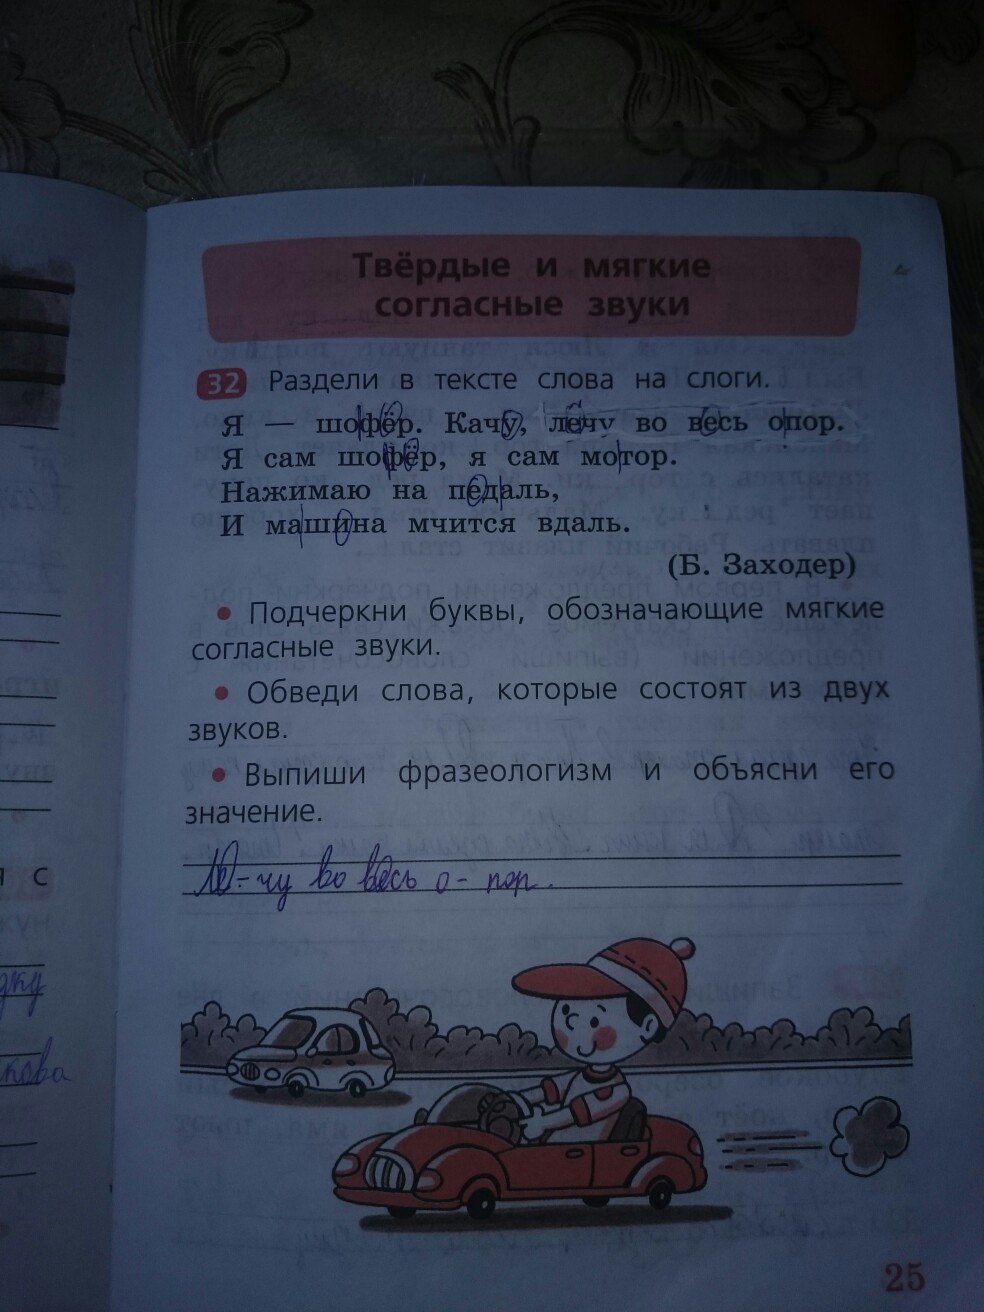 Твёрдые и мягкие
согласные звуки
32 Раздели в тексте слова на слоги.
Я — шофёр. Качу, лечу во весь опор.
Я сам шофёр, я сам мотор.
Нажимаю на педаль,
И машина мчится вдаль.
(Б. Заходер)
• Подчеркни буквы, обозначающие мягкие
согласные звуки.
• Обведи слова, которые состоят из двух
звуков.
• Выпиши фразеологизм и объясни его
значение.
я с
Ле-чу во весь о-пор.
25